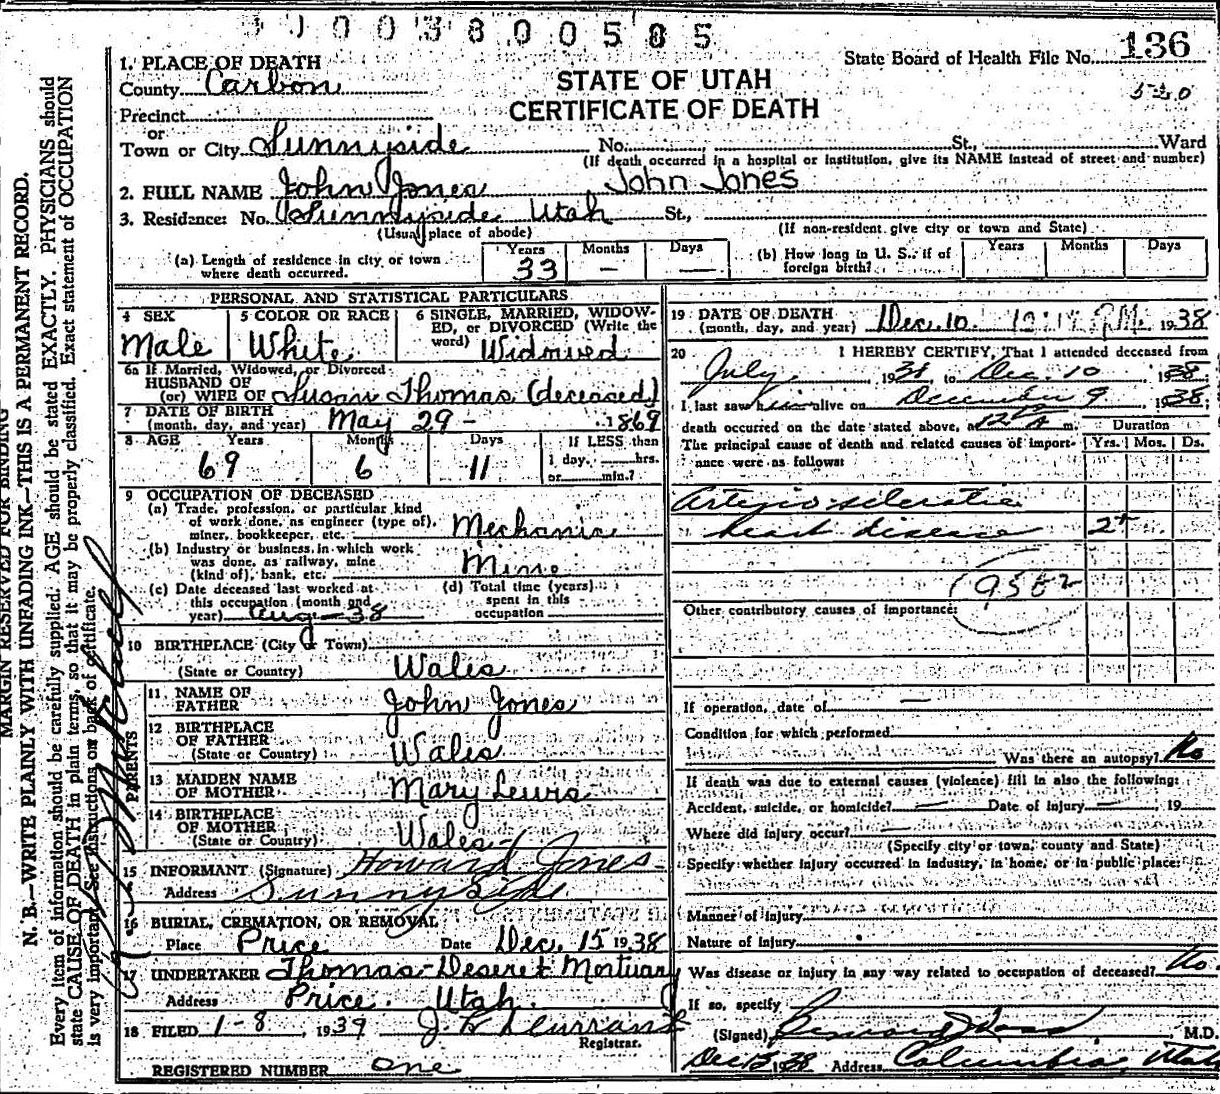 1. PLACE OF DEATH
County Carbon
Precinct
or
Town or City Sunnyside No. St., Ward
(If death occurred in a hospital or institution, give its NAME instead of street and number)
State Board of Health File No. 136
STATE OF UTAH
CERTIFICATE OF DEATH
2. FULL NAME John Jones John Jones
3. Residence: No. Sunnyside Utah St.,
(Usual place of abode) (If non-resident give city or town and State)
(a) Length of residence in city or town where death occurred. Years 33 Months — Days —
(b) How long in U. S. if of foreign birth? Years Months Days
PERSONAL AND STATISTICAL PARTICULARS
4 SEX Male
5 COLOR OR RACE White
6 SINGLE, MARRIED, WIDOWED, or DIVORCED (Write the word) Widowed
6a If Married, Widowed, or Divorced
HUSBAND OF
(or) WIFE OF Susan Thomas (deceased)
7 DATE OF BIRTH
(month, day, and year) May 29 - 1869
8 AGE Years 69 Months 6 Days 11 If LESS than 1 day, hrs. or min.?
9 OCCUPATION OF DECEASED
(a) Trade, profession, or particular kind of work done, as engineer (type of), miner, bookkeeper, etc. Mechanic
(b) Industry or business in which work was done, as railway, mine (kind of), bank, etc. Mine
(c) Date deceased last worked at this occupation (month and year) Aug - 38
(d) Total time (years) spent in this occupation
10 BIRTHPLACE (City or Town)
(State or Country) Wales
PARENTS
11 NAME OF FATHER John Jones
12 BIRTHPLACE OF FATHER
(State or Country) Wales
13 MAIDEN NAME OF MOTHER Mary Lewis
14 BIRTHPLACE OF MOTHER
(State or Country) Wales
15 INFORMANT (Signature) Howard Jones
Address Sunnyside
16 BURIAL, CREMATION, OR REMOVAL
Place Price Date Dec. 15 1938
17 UNDERTAKER Thomas-Deseret Mortuary
Address Price. Utah.
18 FILED 1-8, 1939
Registrar.
REGISTERED NUMBER one
19 DATE OF DEATH
(month, day, and year) Dec. 10. P.M. 1938
20 I HEREBY CERTIFY, That I attended deceased from
July, 1938 to Dec. 10 1938
I last saw him alive on December 9 1938,
death occurred on the date stated above, at m. Duration
The principal cause of death and related causes of importance were as follows: Yrs. Mos. Ds.
Arterio-sclerotic
heart disease 2+
Other contributory causes of importance:
If operation, date of —
Condition for which performed
Was there an autopsy? No
If death was due to external causes (violence) fill in also the following:
Accident, suicide, or homicide? — Date of injury — 19
Where did injury occur? —
(Specify city or town, county and State)
Specify whether injury occurred in industry, in home, or in public place:
Manner of injury
Nature of injury
Was disease or injury in any way related to occupation of deceased? No
If so, specify
(Signed) M.D.
1938 Address Columbia, Utah
MARGIN RESERVED FOR BINDING
N. B.—WRITE PLAINLY WITH UNFADING INK—THIS IS A PERMANENT RECORD.
Every item of information should be carefully supplied. AGE should be stated EXACTLY. PHYSICIANS should
state CAUSE OF DEATH in plain terms, so that it may be properly classified. Exact statement of OCCUPATION
is very important. See instructions on back of certificate.